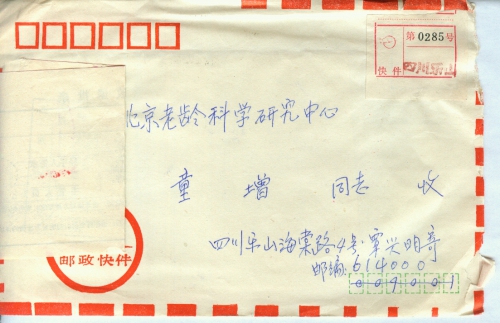 第0285号
快件 四川乐山
北京老龄科学研究中心
童增 同志 收
四川乐山海棠路4号·覃兴明寄
邮编:614000
邮政快件